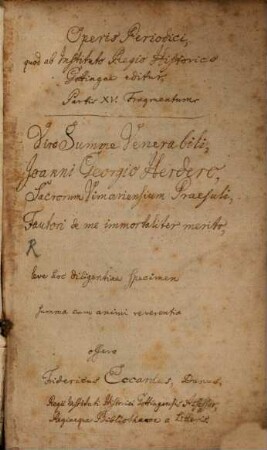 Operis Periodici,
quod ab Instituto Regio Historico
Gottingae editur,
Partis XV. Fragmentum
Viro Summe Venerabili,
Joanni Georgio Herdero,
Sacrorum Vimariensium Praesuli,
Fautori de me immortaliter merito,
R
leve hoc diligentiae specimen
summa cum animi reverentia
offero
Fridericus Eccardus, Danus,
Regii Instituti Historici Gottingensis Assessor,
Regiaeque Bibliothecae a litteris